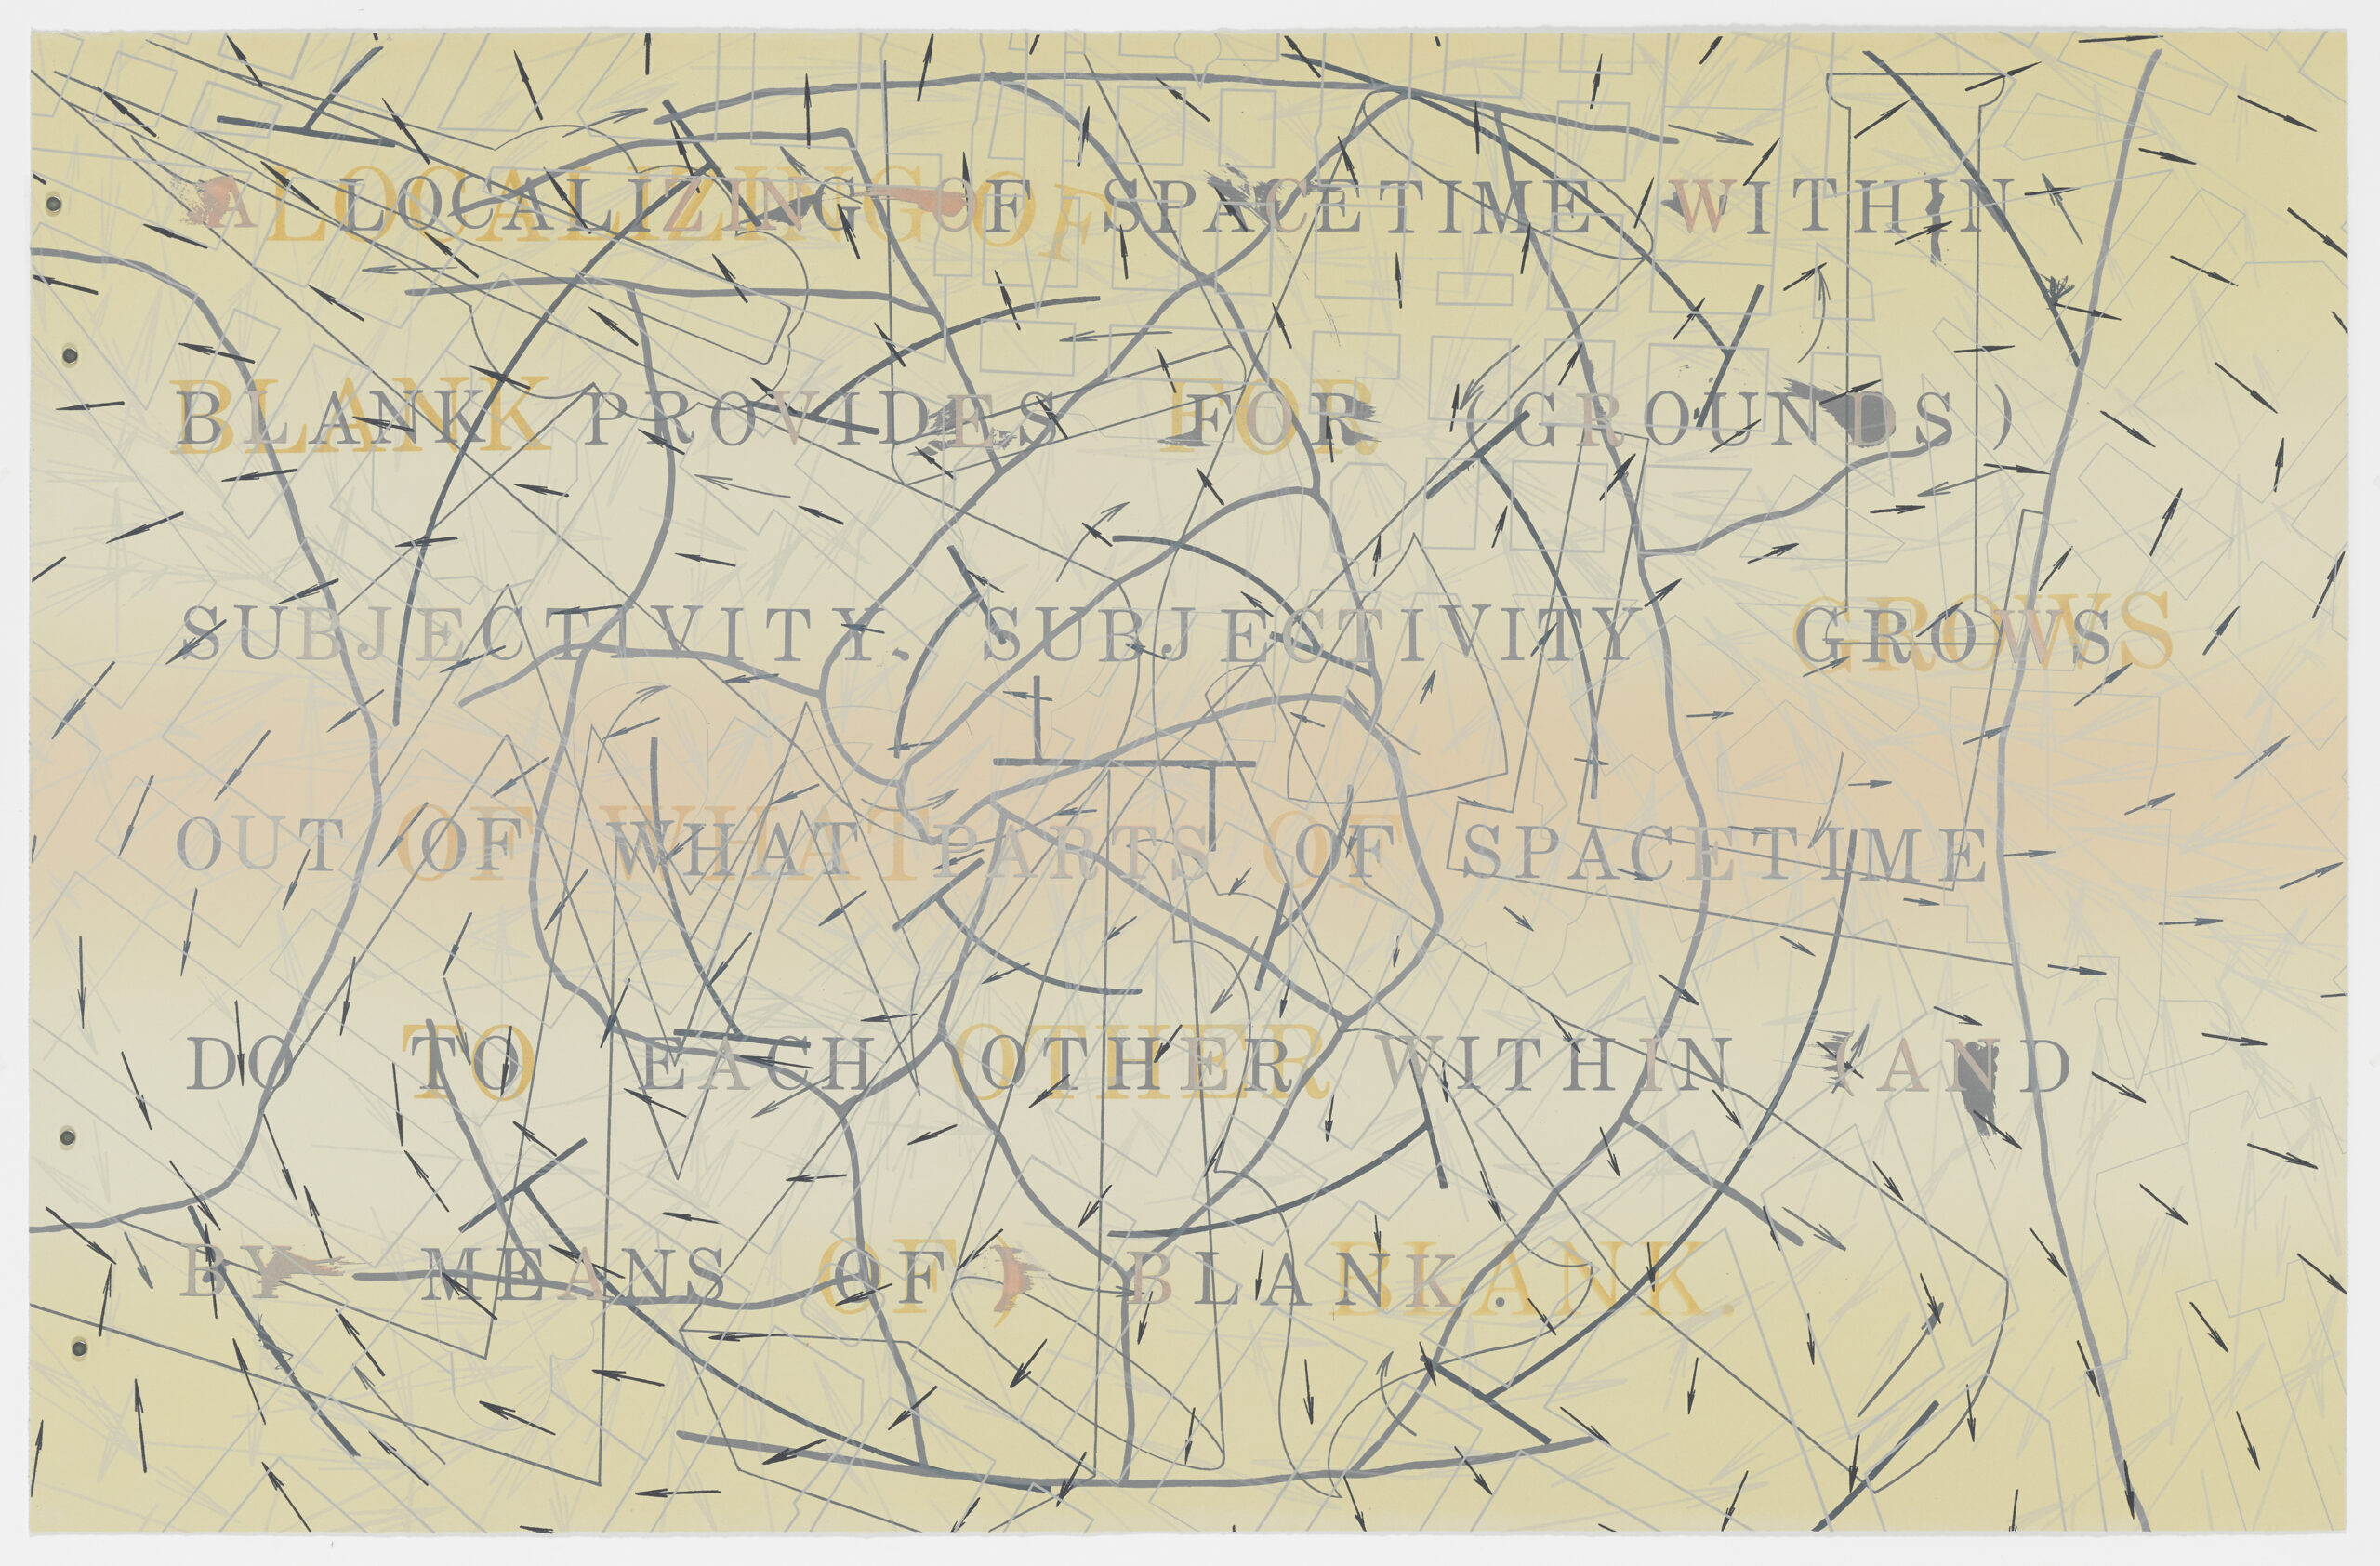 A LOCALIZING OF SPACETIME WITHIN
BLANK PROVIDES FOR (GROUNDS)
SUBJECTIVITY. SUBJECTIVITY GROWS
OUT OF WHAT PARTS OF SPACETIME
DO TO EACH OTHER WITHIN (AND
BY MEANS OF) BLANK.